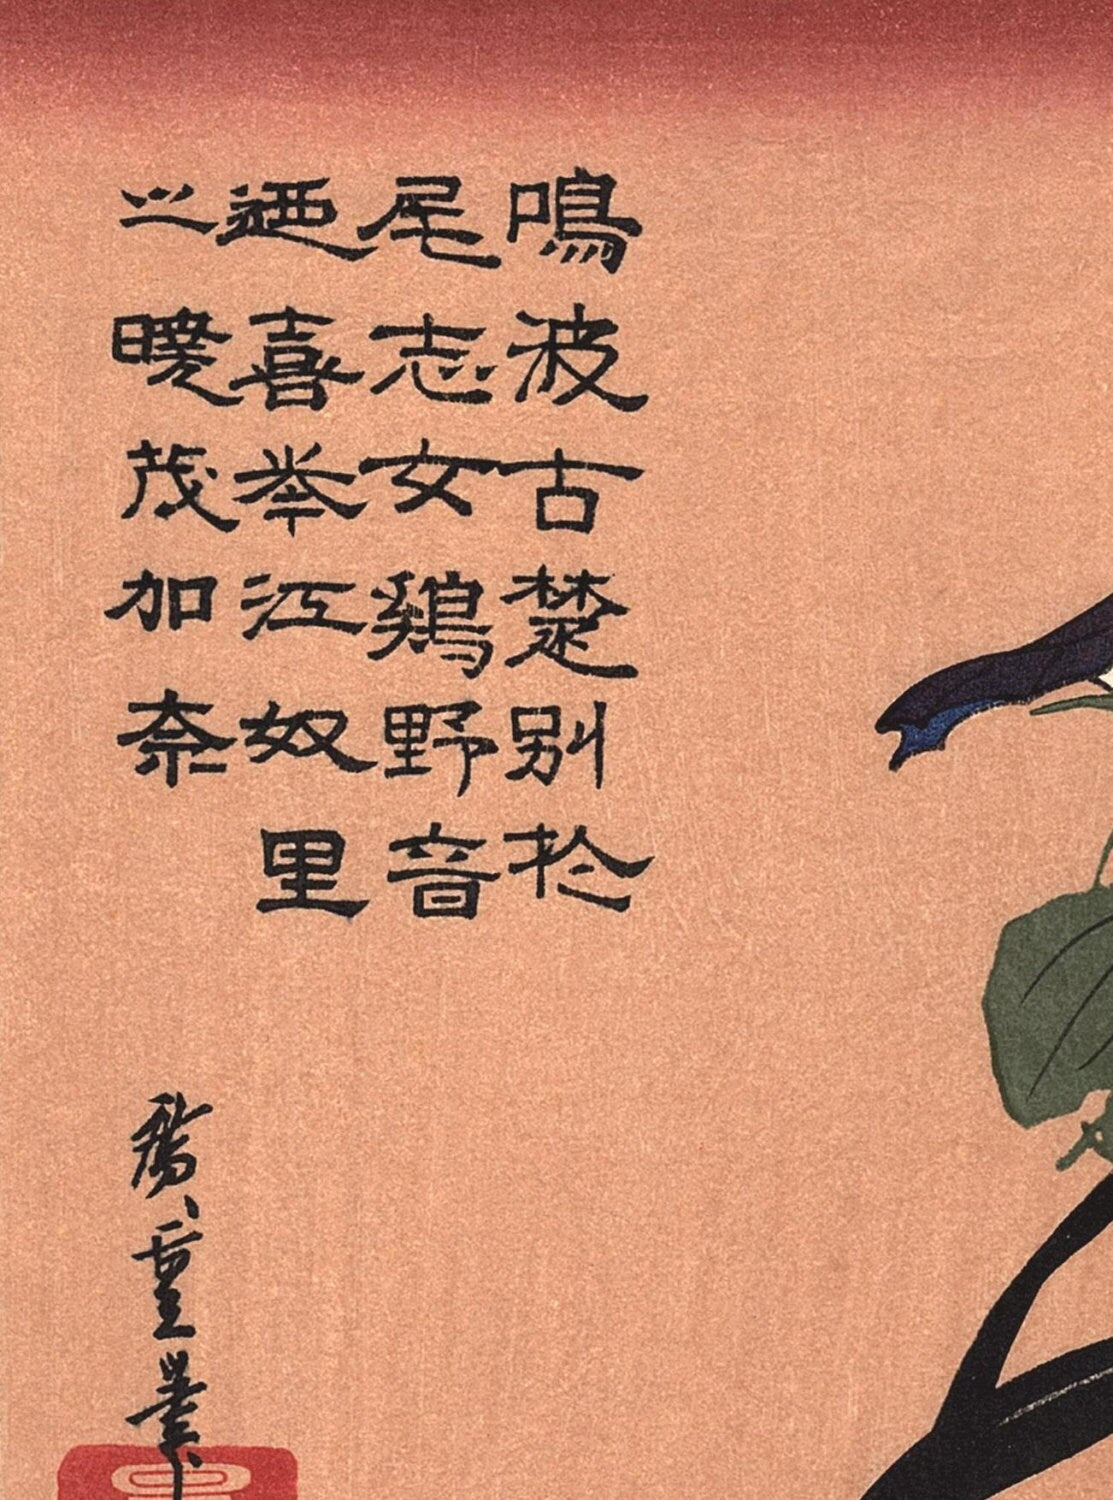 鳴波古楚別扵
尾志女鶏野音
迺喜挙江奴里
之暁茂加奈
廣重筆